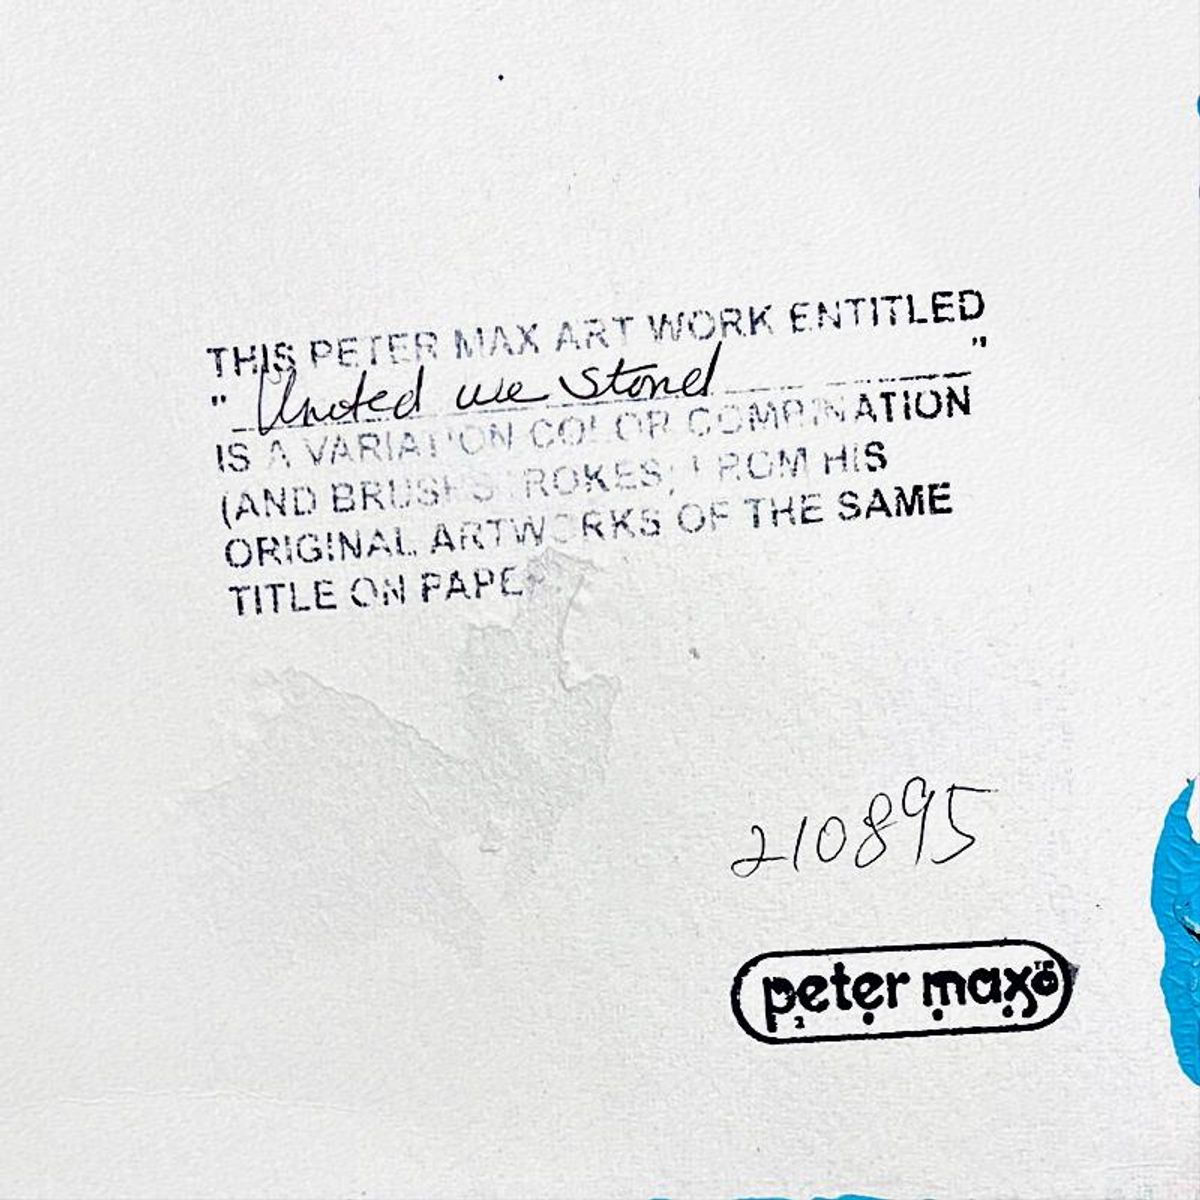 THIS PETER MAX ART WORK ENTITLED
" United we Stand "
IS A VARIATION COLOR COMBINATION
(AND BRUSHSTROKES) FROM HIS
ORIGINAL ARTWORKS OF THE SAME
TITLE ON PAPER
210895
peter max™